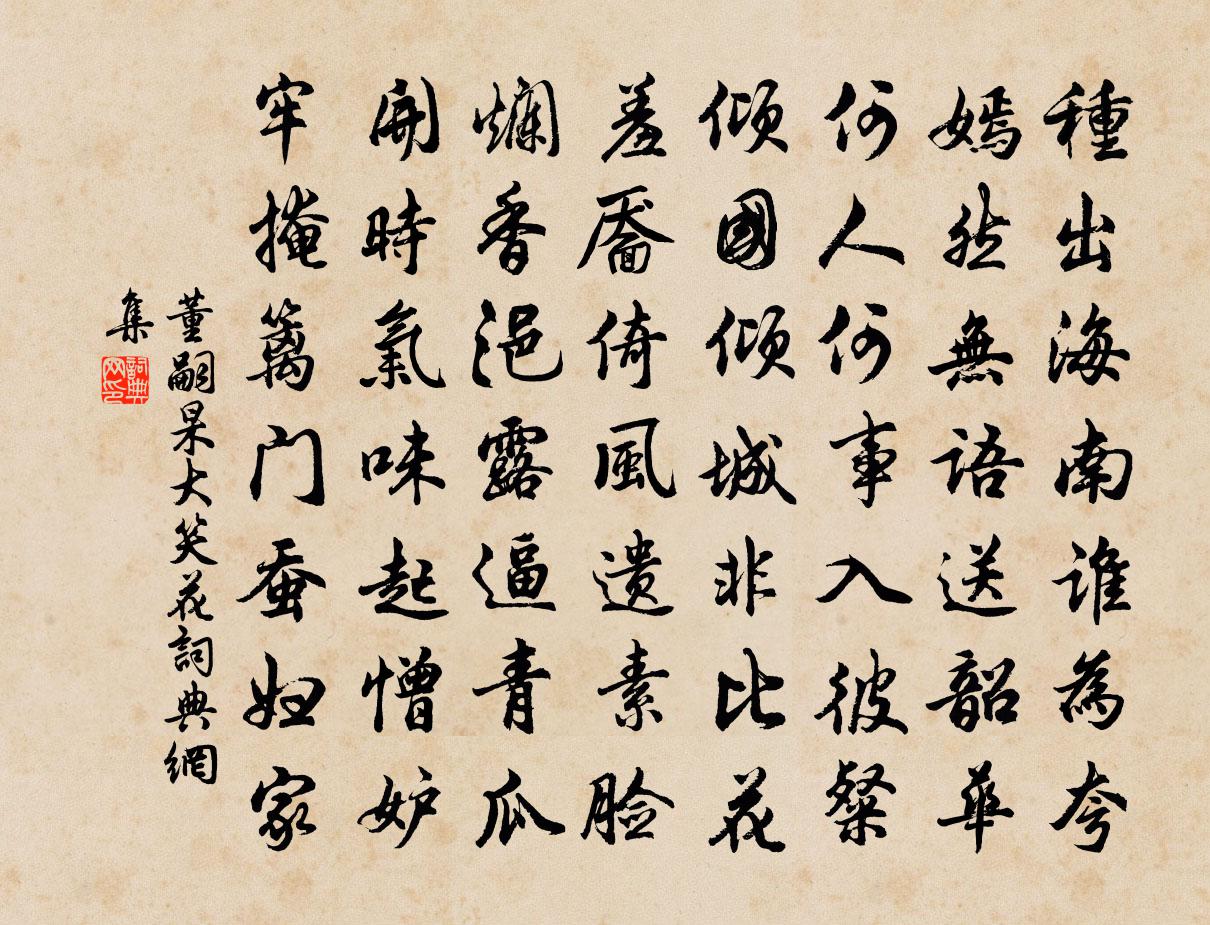 種出海南誰為夸
嫣然無語送韶華
何人何事入彼粲
傾國傾城非比花
羞靨倚風遺素脸
爛香浥露逼青瓜
開時氣味起憎妒
牢掩籬门蚕妇家
董嗣杲大笑花詞典網
集
詞典网印